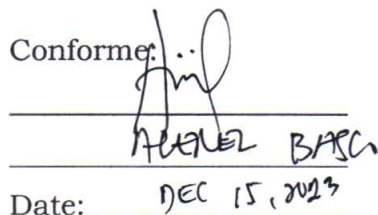 Conforme:
BASCO
Date: DEC 15, 2023